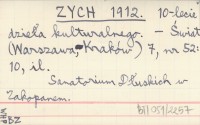 ZYCH 1912. 10-lecie
dzieła kulturalnego. - Świat
(Warszawa, Kraków) 7, nr 52:
10, il.
Sanatorium Dłuskich w
Zakopanem.
BZ